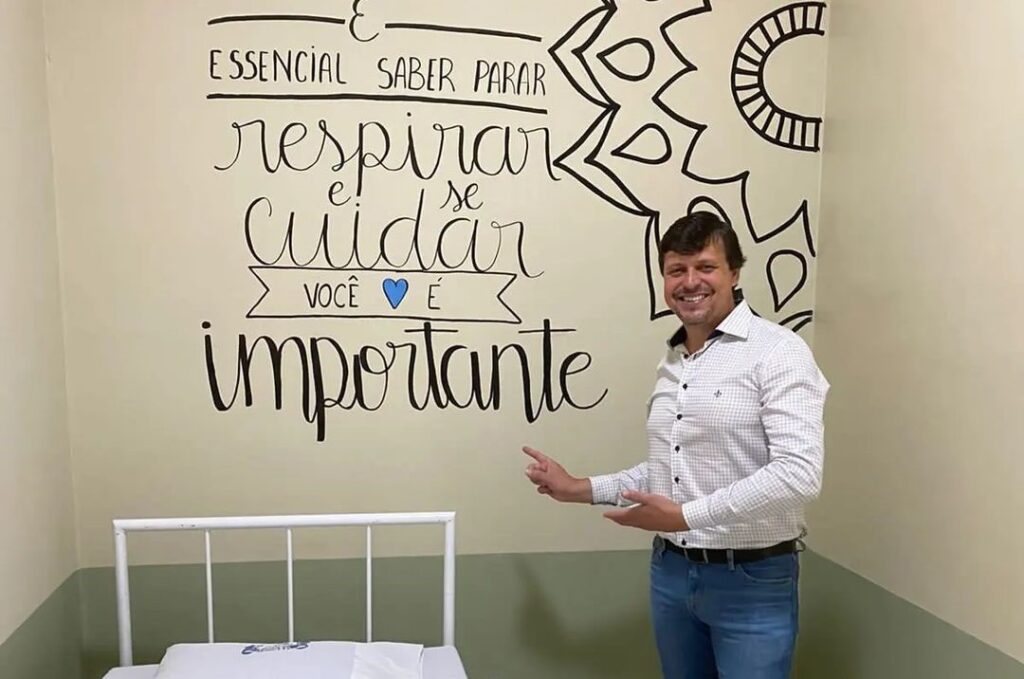 É
ESSENCIAL SABER PARAR
respirar
e se
cuidar
VOCÊ É
importante